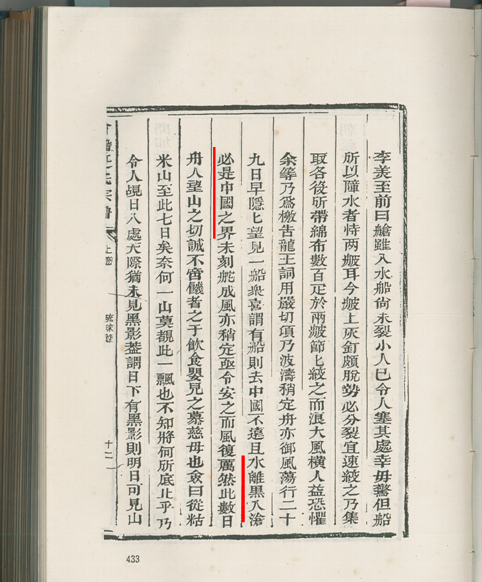 李美至前曰艙雖入水船尚未裂小人已令人塞其處幸毋驚但船
所以障水者恃兩艕耳今艕上灰釘頗脫勢必分裂宜速絞之乃集
取各役所帶綿布數百疋於兩艕節匕絞之而浪大風橫人益恐懼
余等乃爲檄告龍王詞用嚴切項乃波濤稍定舟亦御風蕩行二十
九日早隱匕望見一船衆喜謂有船則去中國不遠且水離黑入滄
必是中國之界未刻舵成風亦稍定亟令安之而風復厲然此數日
舟人望山之切誠不啻饑者之于飲食嬰兒之慕慈母也僉曰從粘
米山至此七日矣奈何一山莫覩此一飄也不知將何所底止乎乃
令人覘日入處天際猶未見黑影葢謂日下有黑影則明日可見山
上卷
琉球
十二
433